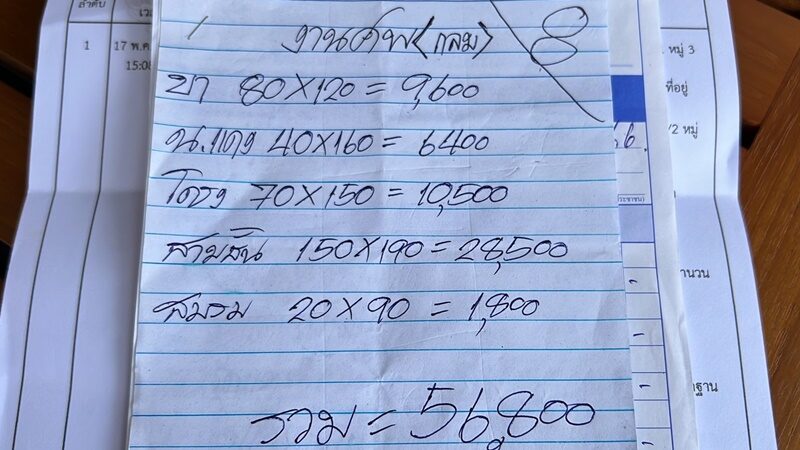 ลำดับ
1
17 พ.ค.
15:08
งานศพ (กลม)
8
ขา 80 X 120 = 9,600
น.แดง 40X160 = 6400
โครง 70 X 150 = 10,500
สามชั้น 150 X 190 = 28,500
สมรม 20 X 90 = 1,800
รวม = 56,800
หมู่ 3
ที่อยู่
/2 หมู่
6.
ระชาชน)